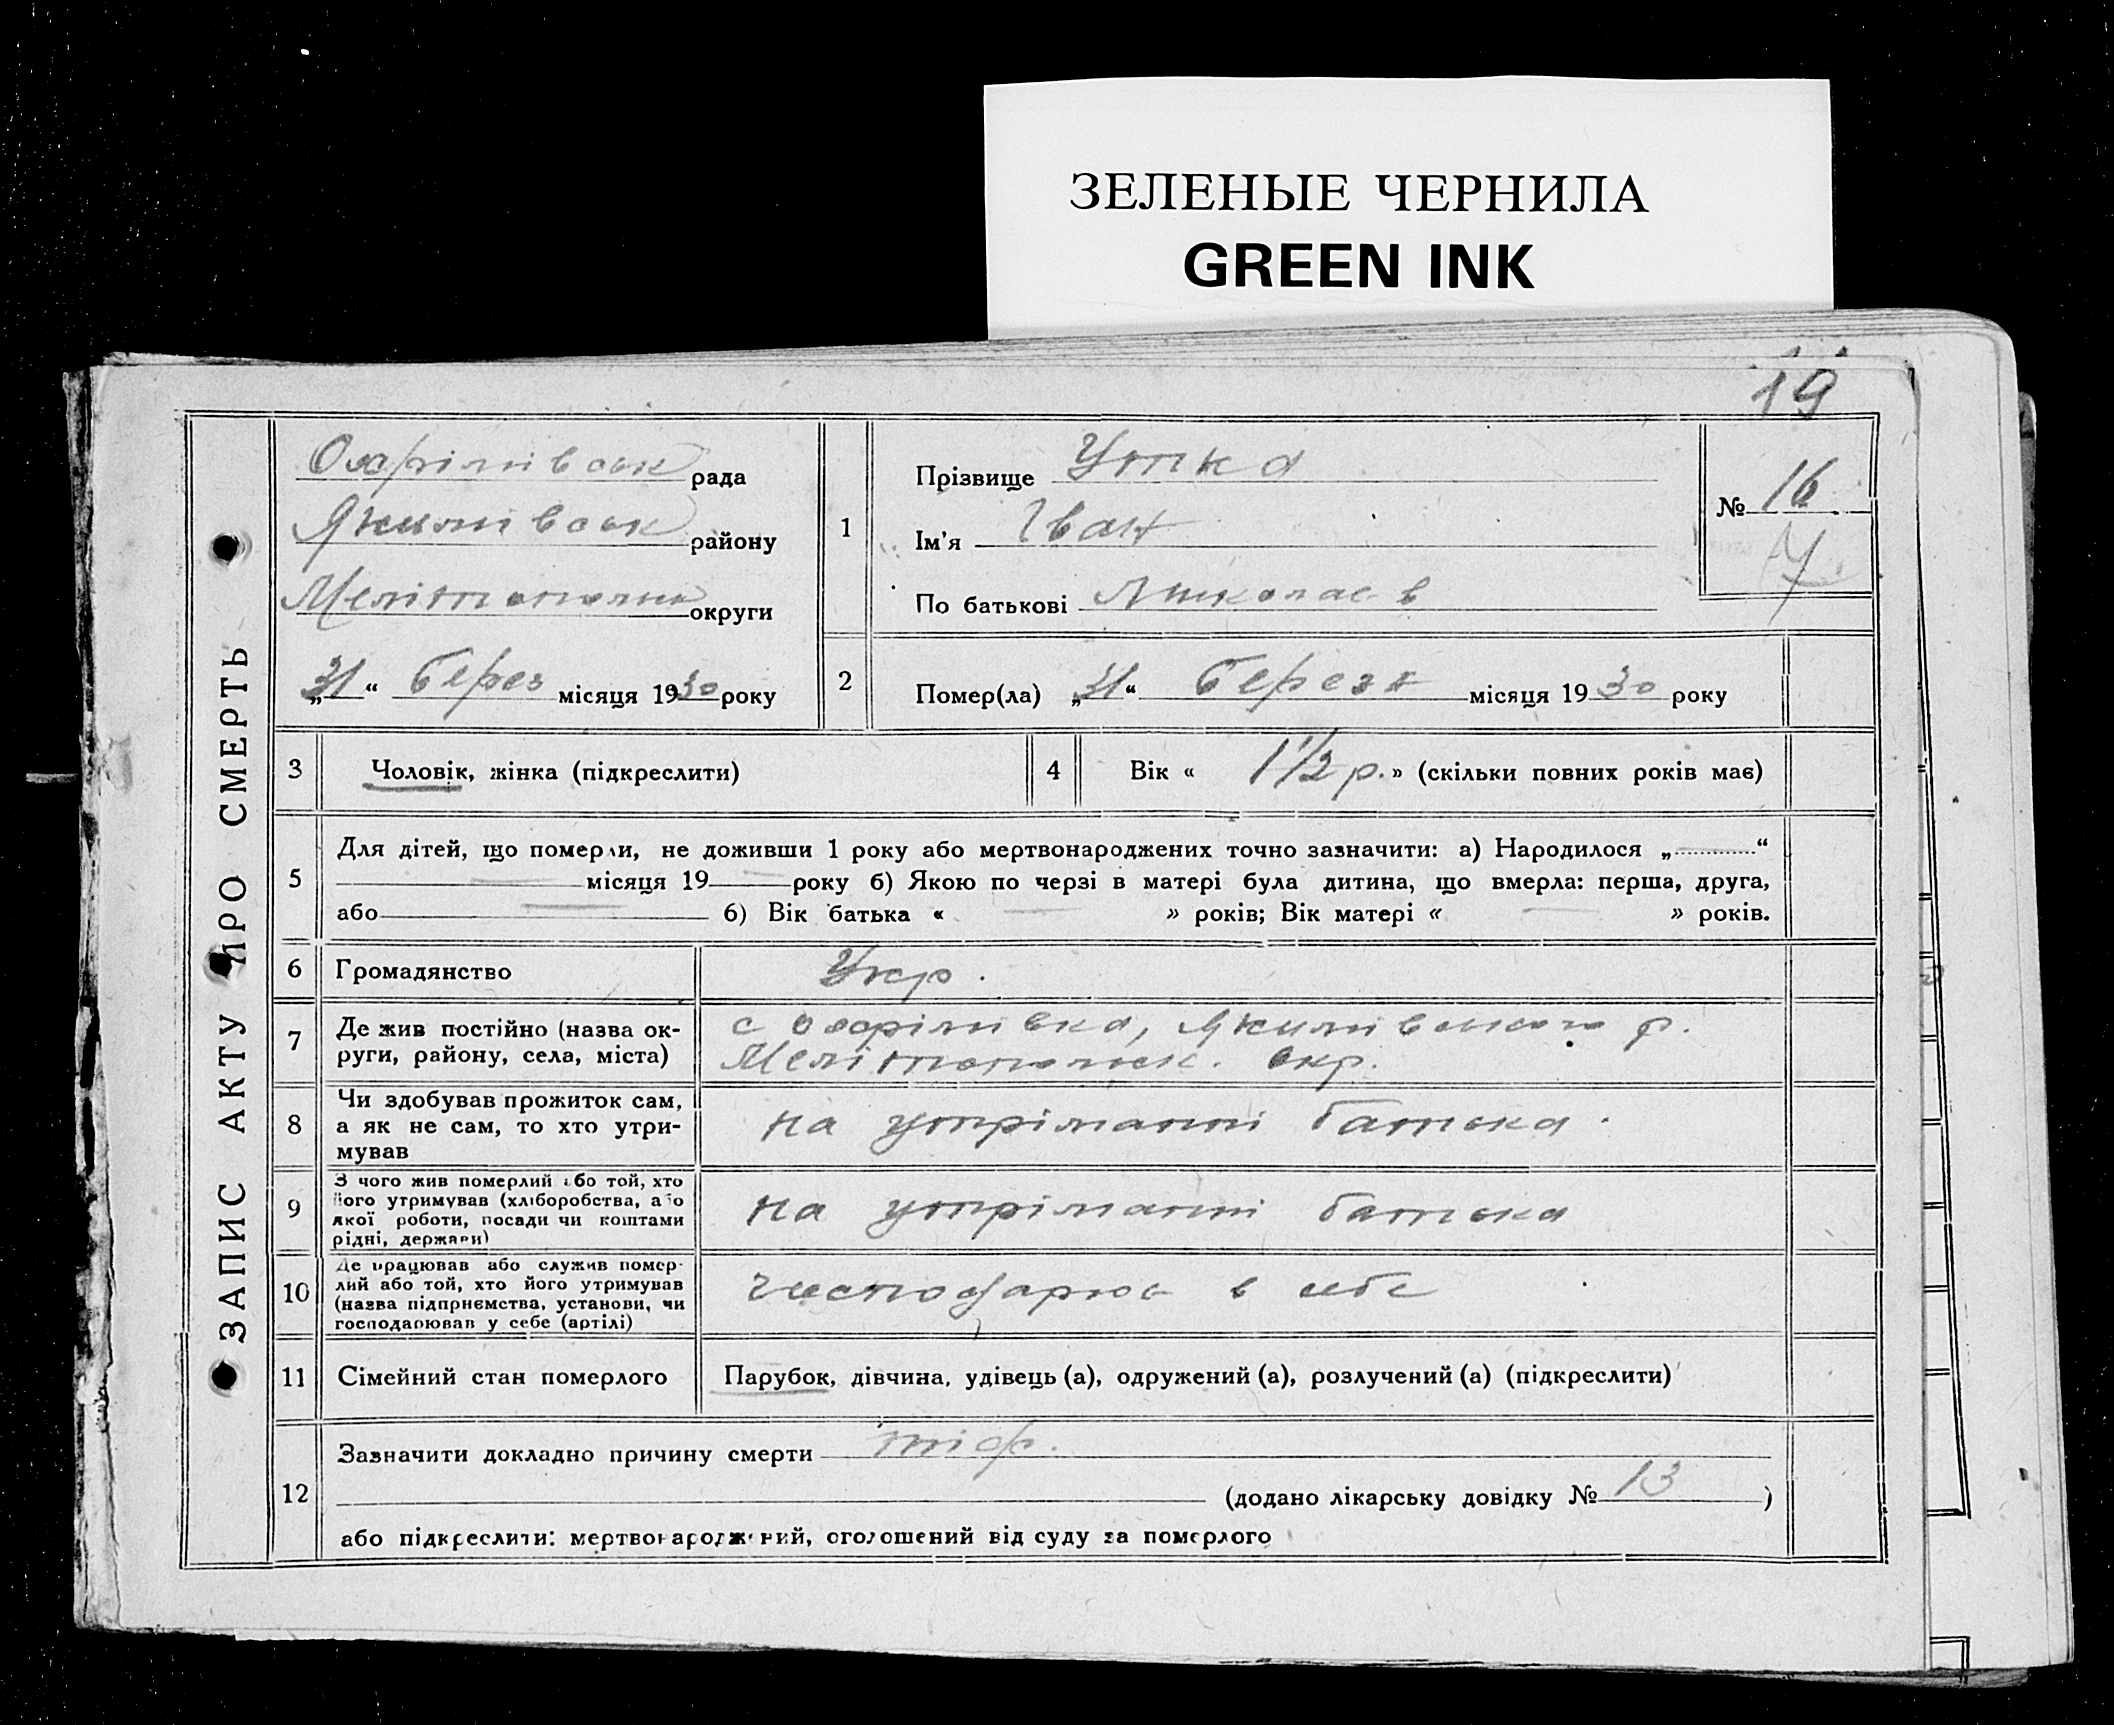 ЗЕЛЕНЫЕ ЧЕРНИЛА
GREEN INK
19
ЗАПИС АКТУ ПРО СМЕРТЬ
Охрімівськ рада
Якимівськ району
Мелітопольськ округи
„31“ берез місяця 1930 року
1
Прізвище Утка
Ім'я Іван
По батькові Миколаєв
№ 16
2
Помер(ла) „31“ березя місяця 1930 року
3 Чоловік, жінка (підкреслити)
4 Вік « 1 1/2 р. » (скільки повних років має)
5
Для дітей, що померли, не доживши 1 року або мертвонароджених точно зазначити: а) Народилося „ “
місяця 19 року б) Якою по черзі в матері була дитина, що вмерла: перша, друга,
або б) Вік батька « » років; Вік матері « » років.
6 Громадянство Укр.
7
Де жив постійно (назва ок-
руги, району, села, міста)
с Охрімівка, Якимівського р.
Мелітопольск. окр.
8
Чи здобував прожиток сам,
а як не сам, то хто утри-
мував
на утріманні батька.
9
З чого жив померлий або той, хто
його утримував (хліборобства, або
якої роботи, посади чи коштами
рідні, держави)
на утріманні батька
10
Де працював або служив помер-
лий або той, хто його утримував
(назва підприємства, установи, чи
господарював у себе (артілі)
господарює в себе
11 Сімейний стан померлого Парубок, дівчина, удівець (а), одружений (а), розлучений (а) (підкреслити)
12
Зазначити докладно причину смерти тіф.
(додано лікарську довідку № 13 )
або підкреслити: мертвонароджений, оголошений від суду за померлого